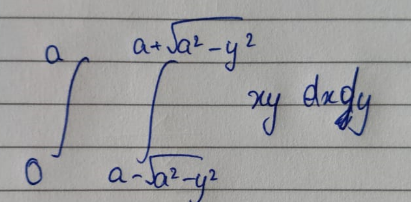 ∫₀ᵃ ∫_{a-√(a²-y²)}^{a+√(a²-y²)} xy dxdy